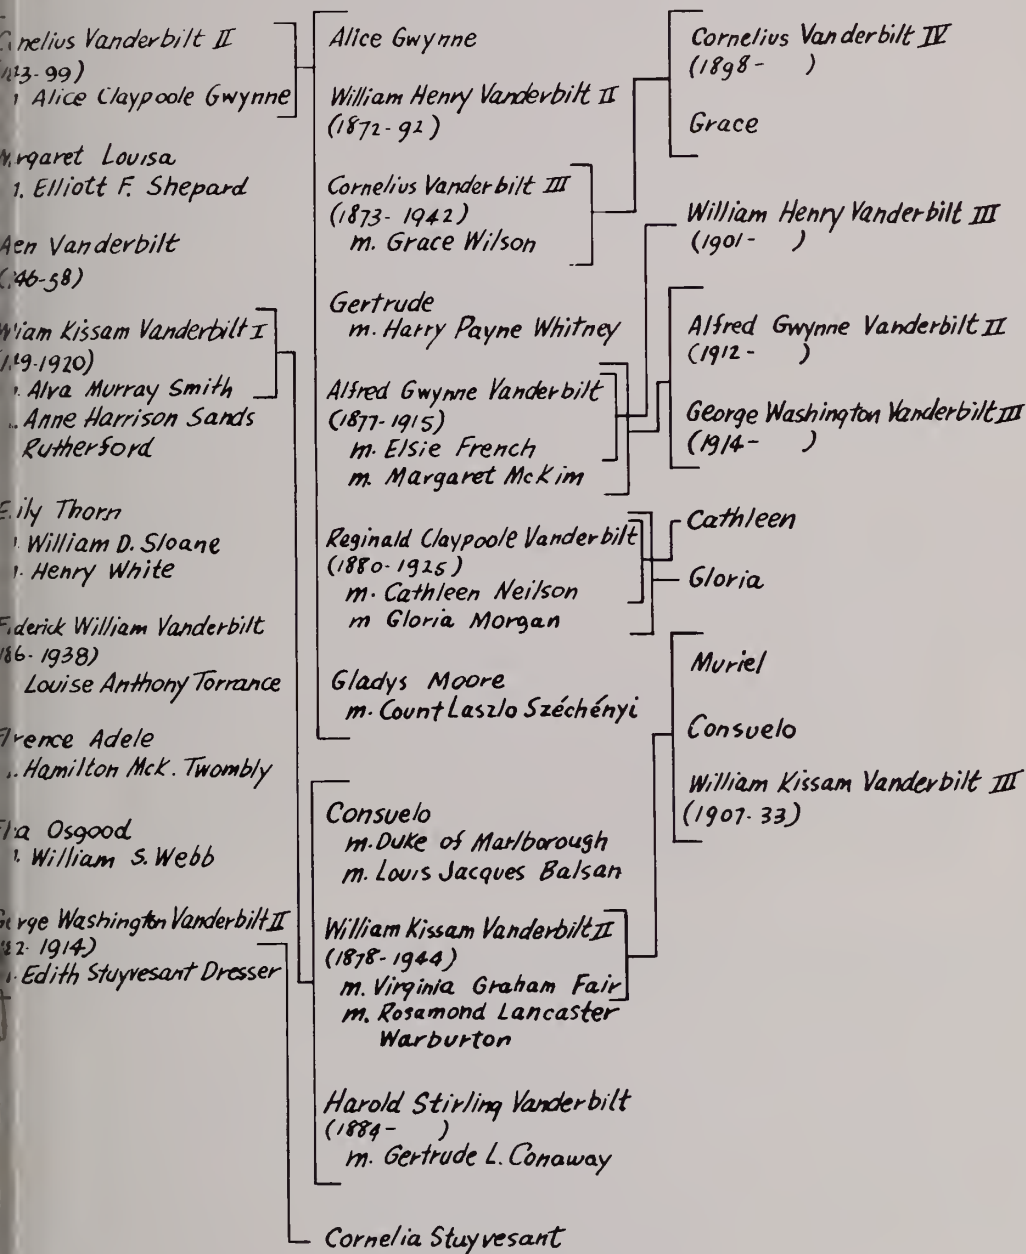 Vanderbilt II
Alice Claypoole Gwynne
Louisa
Elliott F. Shepard
Vanderbilt
Kissam Vanderbilt I
1920)
Alva Murray Smith
Anne Harrison Sands
Rutherford
Thorn
William D. Sloane
Henry White
William Vanderbilt
1938)
Louise Anthony Torrance
Adele
Hamilton McK. Twombly
Osgood
William S. Webb
Washington Vanderbilt II
1914)
Edith Stuyvesant Dresser
Alice Gwynne
William Henry Vanderbilt II
(1872-92)
Cornelius Vanderbilt III
(1873-1942)
m. Grace Wilson
Gertrude
m. Harry Payne Whitney
Alfred Gwynne Vanderbilt
(1877-1915)
m. Elsie French
m. Margaret McKim
Reginald Claypoole Vanderbilt
(1880-1925)
m. Cathleen Neilson
m Gloria Morgan
Gladys Moore
m. Count Laszlo Széchényi
Consuelo
m. Duke of Marlborough
m. Louis Jacques Balsan
William Kissam Vanderbilt II
(1878-1944)
m. Virginia Graham Fair
m. Rosamond Lancaster
Warburton
Harold Stirling Vanderbilt
(1884- )
m. Gertrude L. Conaway
Cornelia Stuyvesant
Cornelius Vanderbilt IV
(1898- )
Grace
William Henry Vanderbilt III
(1901- )
Alfred Gwynne Vanderbilt II
(1912- )
George Washington Vanderbilt III
(1914- )
Cathleen
Gloria
Muriel
Consuelo
William Kissam Vanderbilt III
(1907-33)